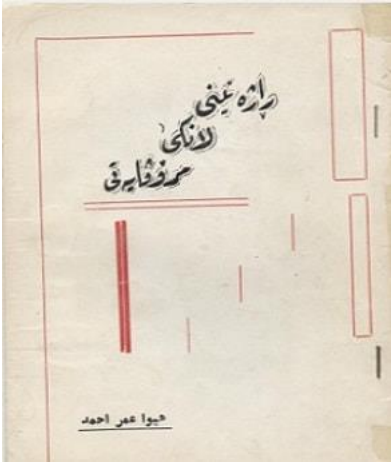 ڕاژه نینی
لانکی
مرۆڤایه تی
هیوا عمر احمد